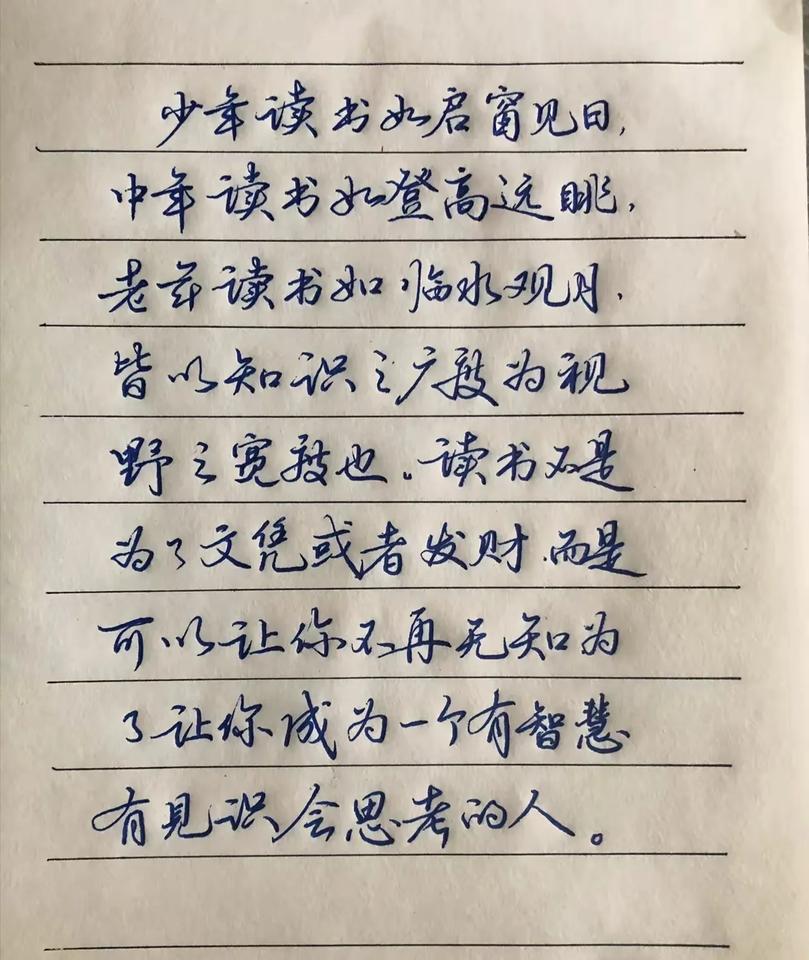 少年读书如启窗见日,
中年读书如登高远眺,
老年读书如临水观月,
皆以知识之广度为视
野之宽度也。读书不是
为了文凭或者发财,而是
可以让你不再无知为
了让你成为一个有智慧
有见识会思考的人。